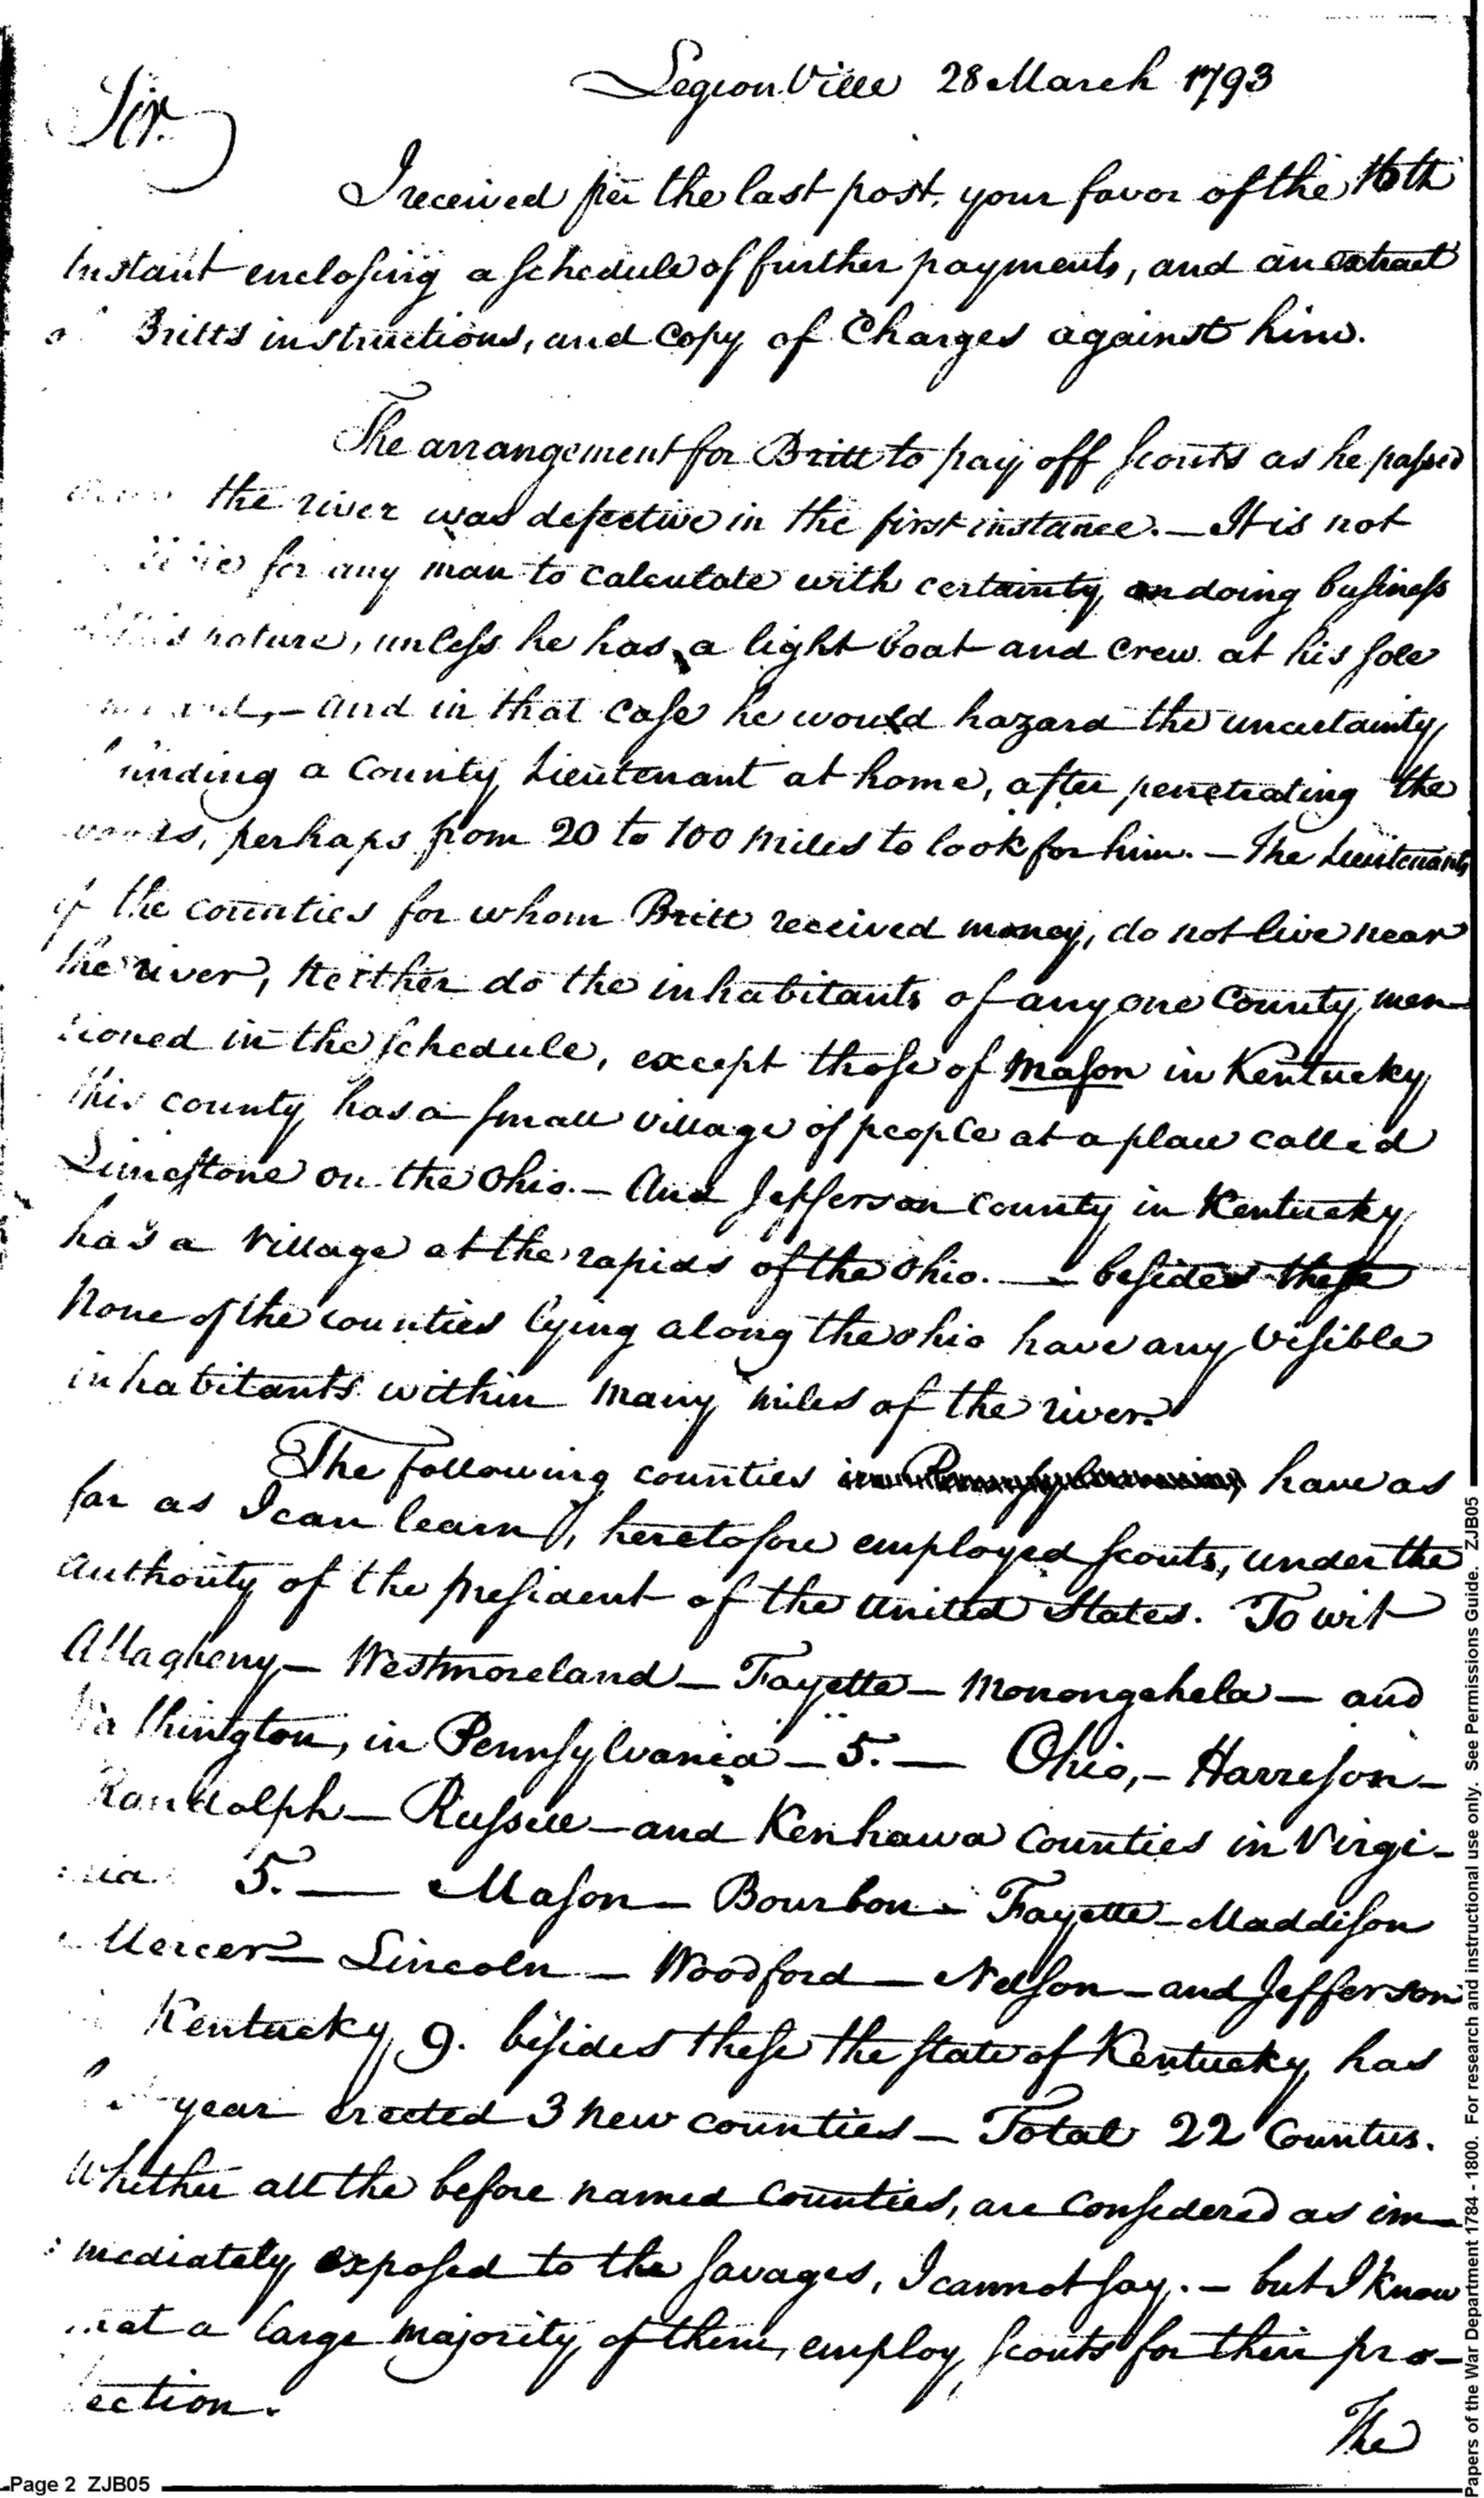 Legion Ville 28 March 1793
Sir.
I received per the last post, your favor of the 16th
Instant enclosing a schedule of further payments, and an extract
Britts instructions, and copy of Charges against him.
The arrangement for Britt to pay off scouts as he passed
the river was defective in the first instance. — It is not
for any man to calculate with certainty on doing business
nature, unless he has a light boat and crew at his sole
— and in that case he would hazard the uncertainty
finding a County Lieutenant at home, after penetrating the
perhaps from 20 to 100 miles to look for him. — The Lieutenants
of the counties for whom Britt received money, do not live near
the river, neither do the inhabitants of any one County men-
tioned in the schedule, except those of Mason in Kentucky
this county has a small village of people at a place called
Limestone on the Ohio. — And Jefferson County in Kentucky
has a village at the rapids of the Ohio. — besides these
None of the counties lying along the Ohio have any visible
inhabitants within many miles of the river.
The following counties have as
far as I can learn, heretofore employed scouts, under the
authority of the president of the United States. To wit
Allagheny — Westmoreland — Fayette — Monongehela — and
Washington, in Pennsylvania — 5. — Ohio, — Harreson —
Randolph — Russell — and Kenhawa Counties in Virgi-
nia. 5. — Mason — Bourbon — Fayette — Maddison
Mercer — Lincoln — Woodford — Nelson — and Jefferson
Kentucky 9. besides these the state of Kentucky has
year erected 3 new counties — Total 22 Counties.
Whether all the before named Counties, are considered as im-
mediately exposed to the savages, I cannot say. — but I know
that a large majority of them, employ scouts for their pro-
tection.
The
Page 2 ZJB05
Papers of the War Department 1784 - 1800. For research and instructional use only. See Permissions Guide. ZJB05